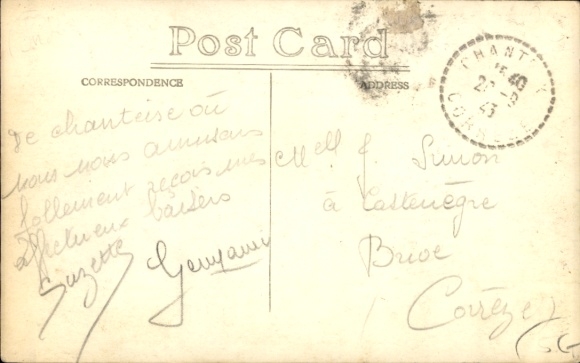 Post Card
CORRESPONDENCE
ADDRESS
CHANT
15 40
26-9
43
CORRÈZE
De chanteise où
nous nous amusons
follement reçois mes
affectueux baisers
Suzette
Melle J. Simon
à Castenègre
Brive
(Corrèze)